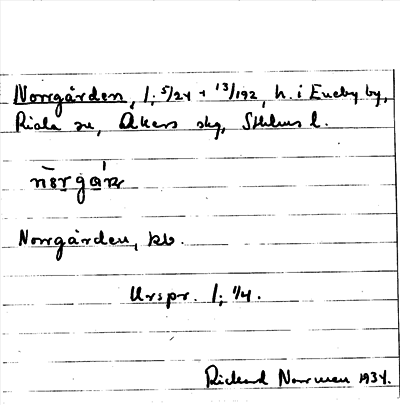 Norrgården, 1; 5/24 + 13/192, h. i Eneby by,
Riala sn, Åkers skg, Sthlms l.
Norrgården, kb.
Urspr. 1; 1/4.
Rickard Norrman 1934.